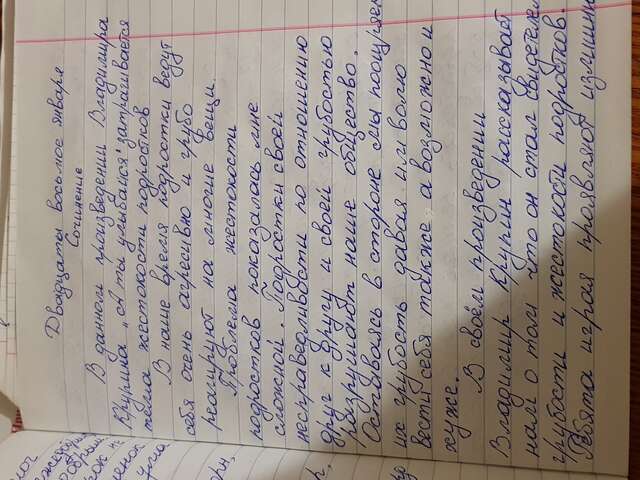 Двадцаты восьмое января
Сочинение
В данном произведении Владимира
Крупина „А ты улыбайся" затрагивается
тема жестокости подростков
В наше время подростки ведут
себя очень агресивно и грубо
реагируют на многие вещи.
Проблема жестокости
подростков показалась мне
сложной. Подростки своей
несправедливости по отношению
друг к другу и своей грубостью
разрушают наше общество.
Оставаясь в стороне мы поощряем
их грубость давая им волю
вести себя также а возможно и
хуже.
В своём произведении
Владимир Крупин рассказывает
нам о том что он стал свидетелем
грубости и жестокости подростков.
Ребята играя проявляют излишн